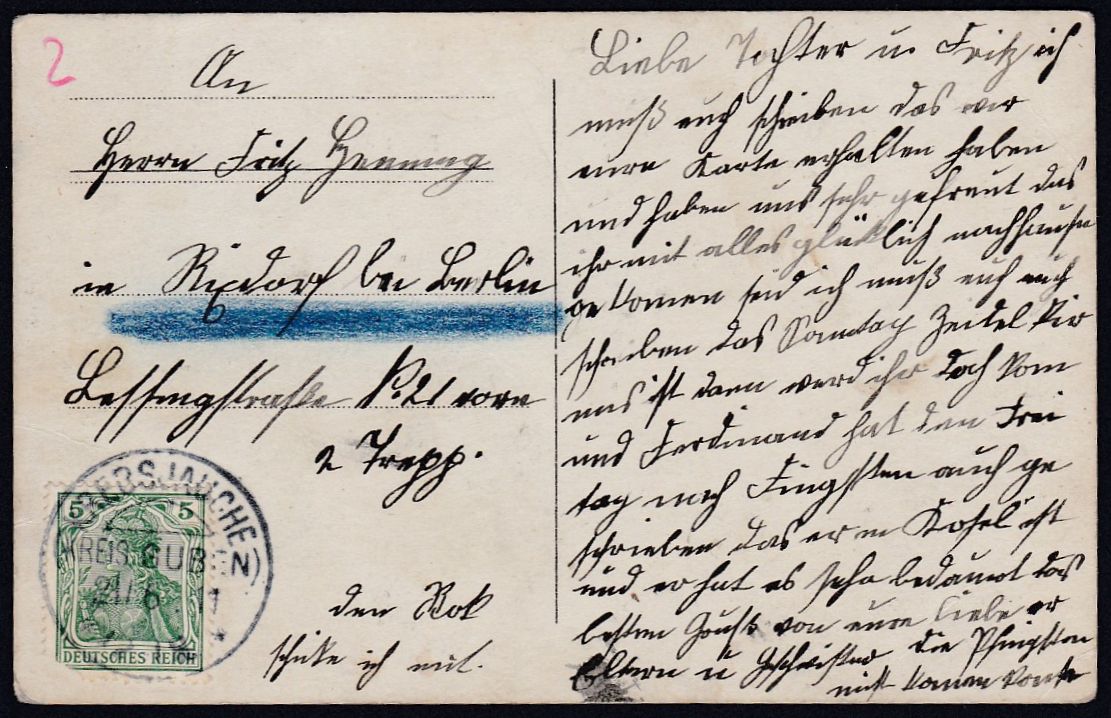 2
An
Herrn Fritz Henning
in Rixdorf bei Berlin
Lessingstraße N. 21 vorn
2 Trepp.
KREIS GUBEN
5 5
DEUTSCHES REICH
den Rok
schike ich mit.
Liebe Tochter u. Fritz ich
muß euch schreiben das wir
eure Karte erhalten haben
und haben uns sehr gefreut das
ihr mit alles glüklich nachhause
gekomen seid ich muß euch auch
schreiben das Sonntag bei
uns ist dann werd ihr doch kom
und Ferdinand hat den Frei
tag nach Fingsten auch ge
schrieben das er in Kosel ist
und er hat es sehr bedauert das
er
besten Gruß von eure liebe
Eltern u Geschwister die Pfingsten
nicht komen konte